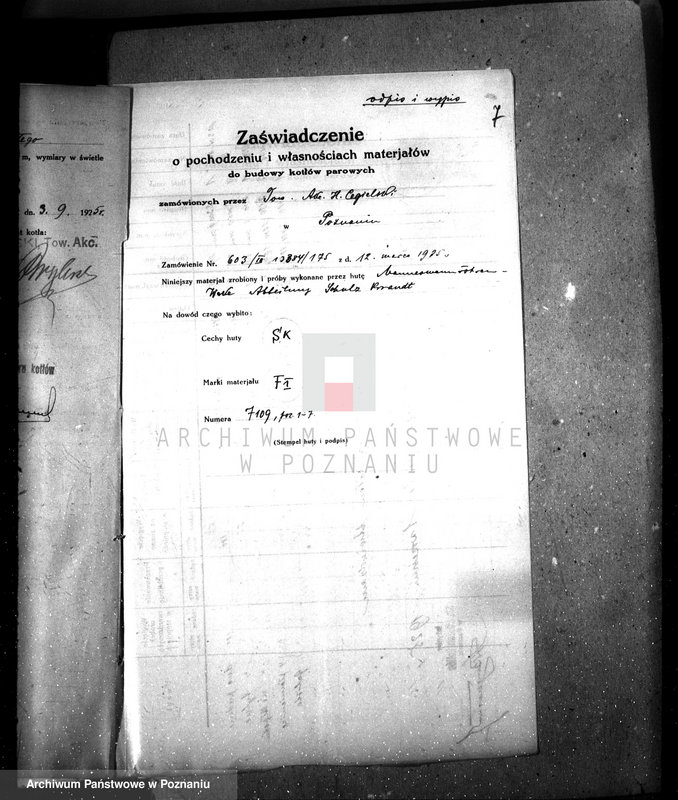 odpis i wypis
7
Zaświadczenie
o pochodzeniu i własnościach materjałów
do budowy kotłów parowych
zamówionych przez Tow. Akc. H. Cegielski
w Poznaniu
Zamówienie Nr. 603/III z d. 12. marca 1925.
Niniejszy materjał zrobiony i próby wykonane przez hutę Mannesmannröhren-
Werke Abteilung Schulz Knaudt
Na dowód czego wybito:
Cechy huty SK
Marki materjału F I
Numera 7109, poz 1-7
(Stempel huty i podpis)
m, wymiary w świetle
dn. 3. 9. 1925r.
kotła:
KI, Tow. Akc.
kotłów
ARCHIWUM PAŃSTWOWE
W POZNANIU
Archiwum Państwowe w Poznaniu